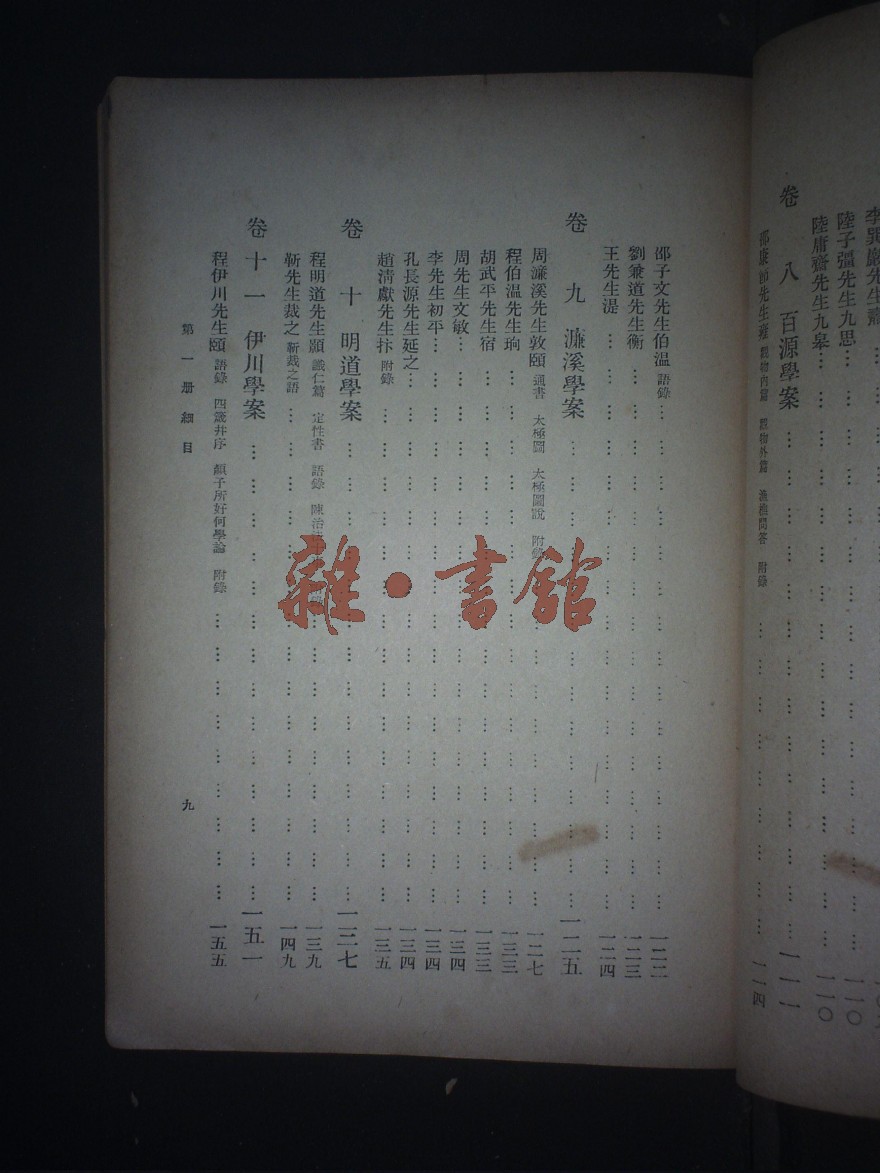 陸子彊先生九思………一一〇
陸庸齋先生九皋………一一〇
卷八 百源學案………一一一
邵康節先生雍 觀物內篇 觀物外篇 漁樵問答 附錄………一一四
邵子文先生伯溫 語錄………一二二
劉兼道先生衡………一二三
王先生湜………一二四
卷九 濂溪學案………一二五
周濂溪先生敦頤 通書 太極圖 太極圖說 附錄………一二七
程伯溫先生珦………一三三
胡武平先生宿………一三三
周先生文敏………一三四
李先生初平………一三四
孔長源先生延之………一三四
趙清獻先生抃 附錄………一三五
卷十 明道學案………一三七
程明道先生顥 識仁篇 定性書 語錄 陳治 錄………一三九
靳先生裁之 靳裁之語………一四九
卷十一 伊川學案………一五一
程伊川先生頤 語錄 四箴幷序 顏子所好何學論 附錄………一五五
第一册細目
九
雜·書館